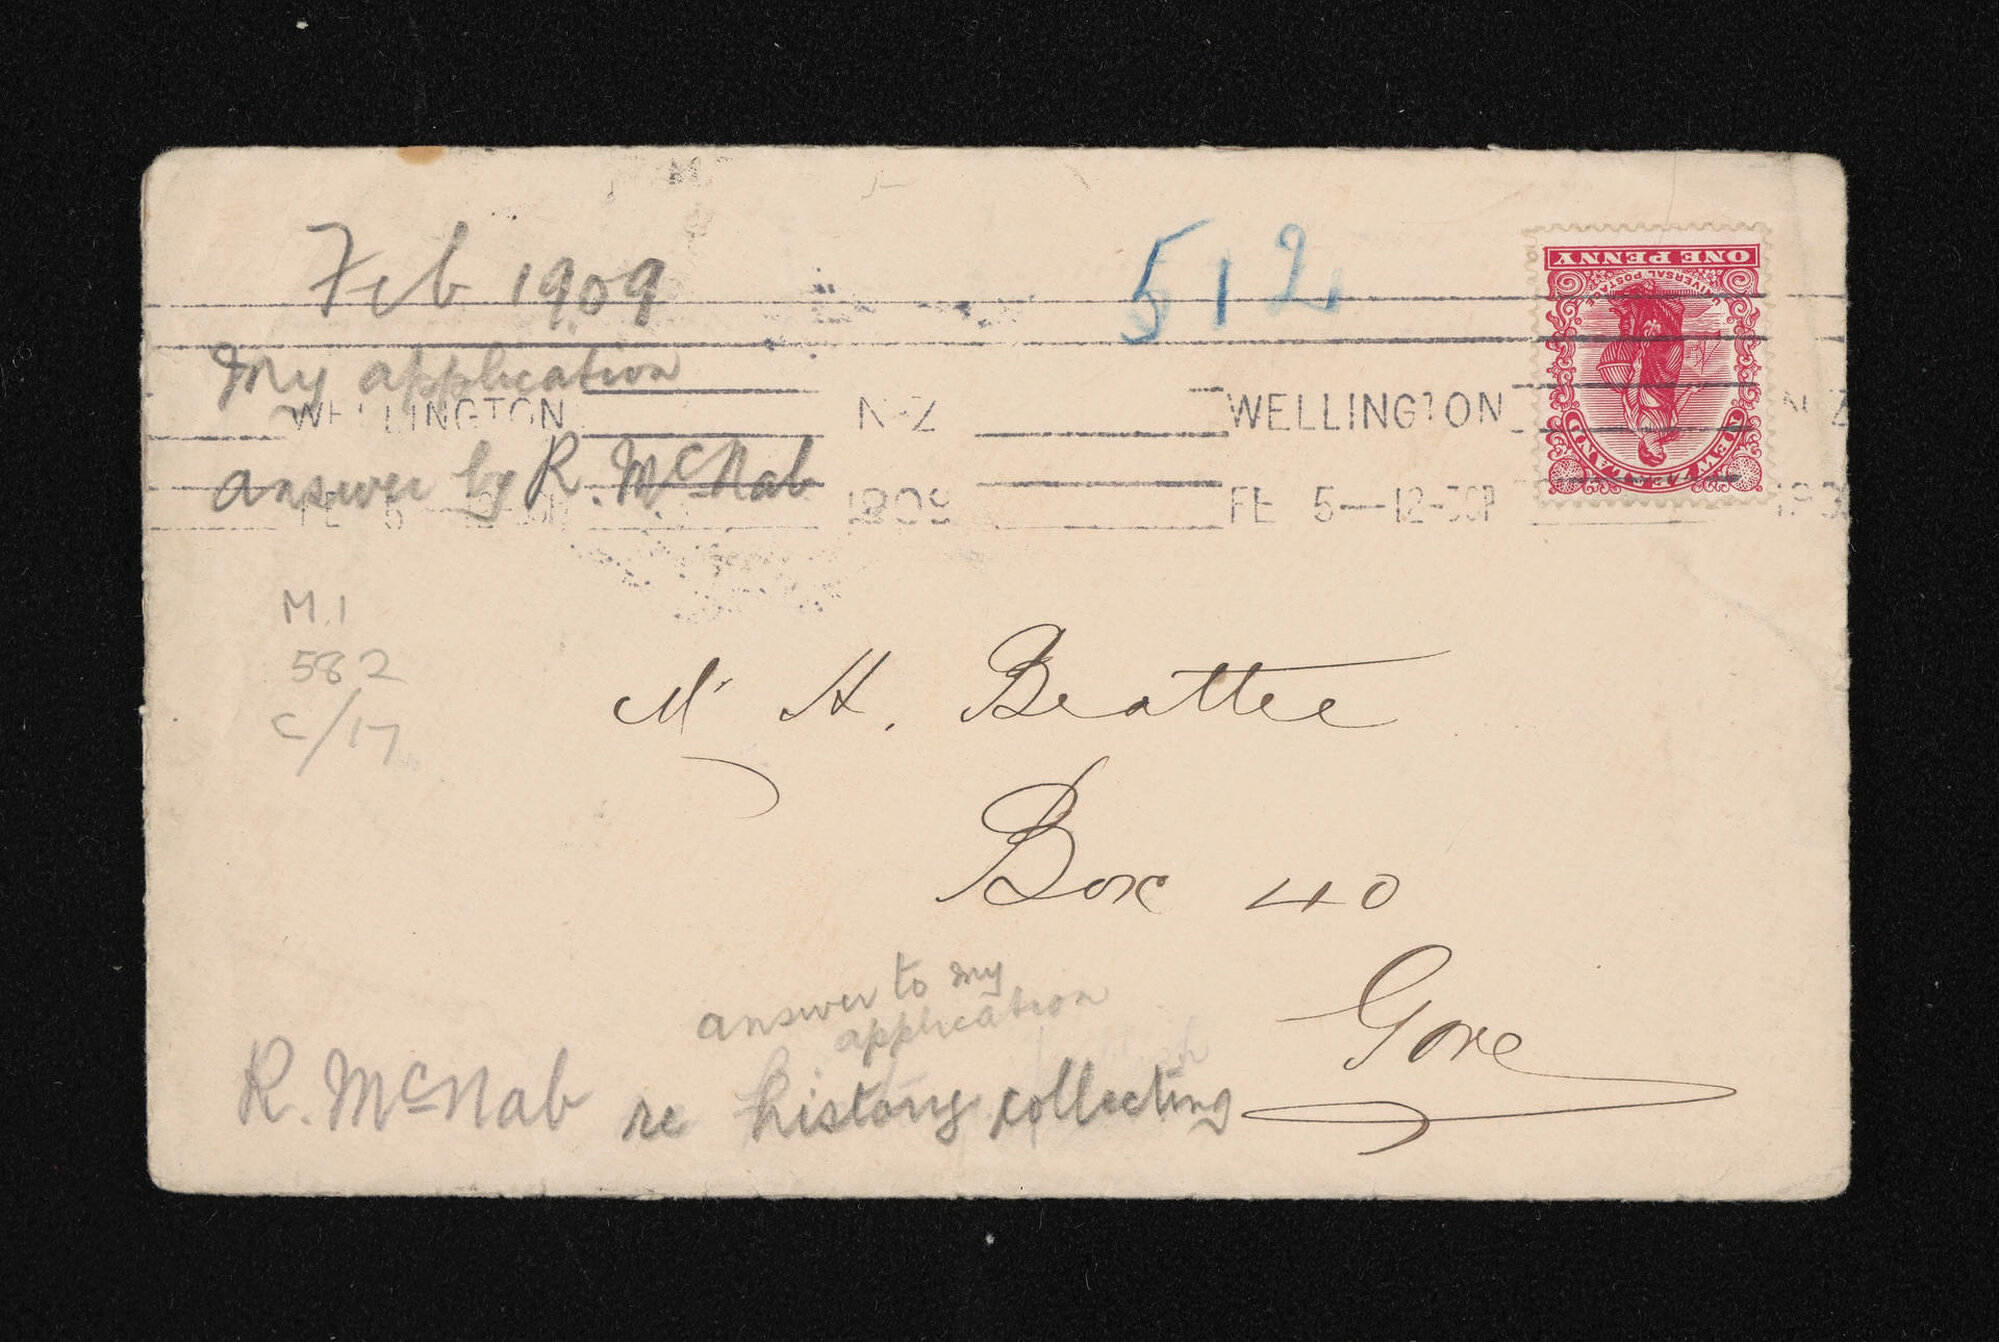 Feb 1909
512
ONE PENNY
UNIVERSAL POSTAGE
NEW ZEALAND
My application
WELLINGTON N.Z WELLINGTON N.Z
answer by R. McNab
FE 5 1909 FE 5—12-30P
M.1
582
C/17
Mr H. Beattie
Box 40
Gore
answer to my
application
R. McNab re history collecting